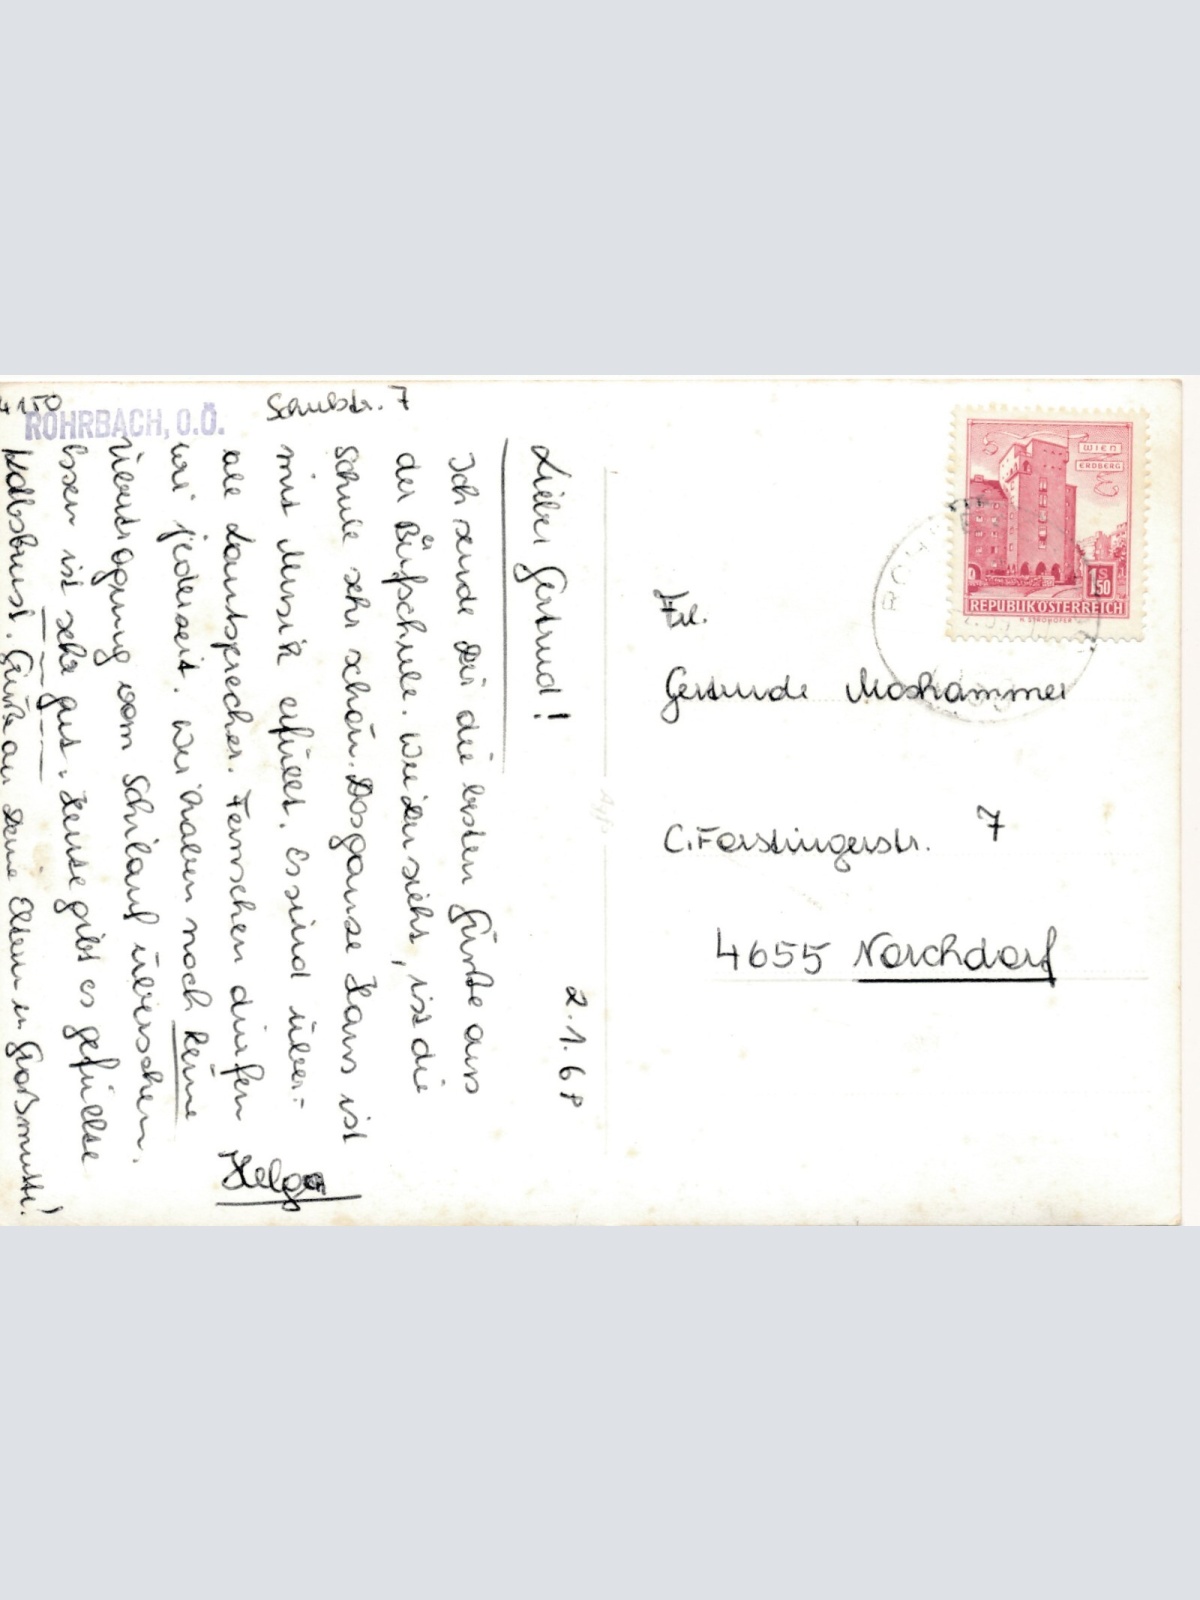 4150
ROHRBACH, O.Ö.
Saubstr. 7
2.1.68
Liebe Gertrud!
Ich sende Dir die besten Grüße aus
der Büfschule. Wie Du siehst, ist die
Schule sehr schön. Das ganze Haus ist
mit Musik erfüllt. Es sind über-
all Lautsprecher. Fernsehen dürfen
wir jederzeit. Wir haben noch keine
Übertragung vom Schilauf übersehen.
Essen ist sehr gut. Heute gibt es gefüllte
Kalbsbrust. Grüße an Deine Eltern u. Großmutti!
Helga
WIEN
ERDBERG
1 S 50
REPUBLIK ÖSTERREICH
H. STROHOFER
Frl.
Gertrude Moshammer
C. Forstingerstr. 7
4655 Vorchdorf